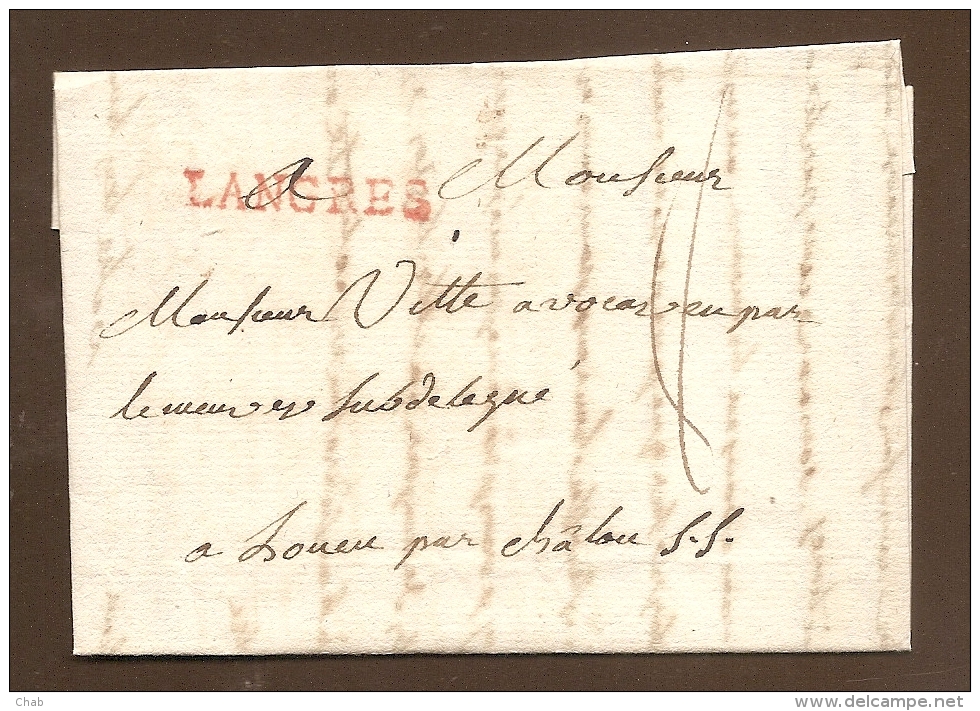 LANGRES
A Monsieur
Monsieur Vitte avocat en par
lement et Subdelegué
a Louen par châlon S.S.
Chab
www.delcampe.net